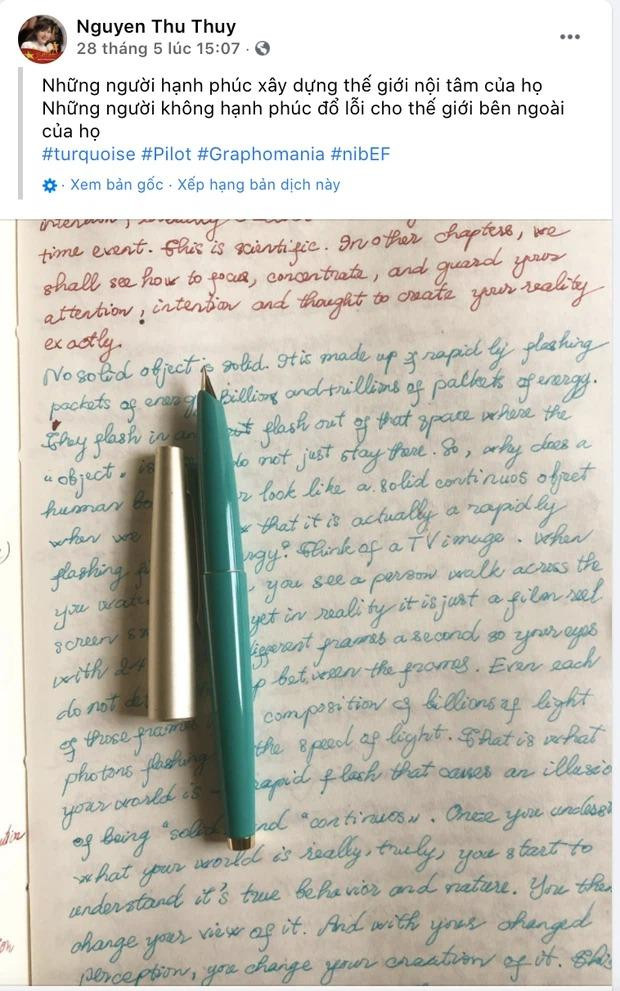 Nguyen Thu Thuy
28 tháng 5 lúc 15:07 ·
Những người hạnh phúc xây dựng thế giới nội tâm của họ
Những người không hạnh phúc đổ lỗi cho thế giới bên ngoài
của họ
#turquoise #Pilot #Graphomania #nibEF
· Xem bản gốc · Xếp hạng bản dịch này
time event. This is scientific. In other chapters, we
shall see how to focus, concentrate, and guard your
attention, intention and thought to create your reality
exactly.
No solid object is solid. It is made up of rapidly flashing
packets of energy billions and trillions of packets of energy.
They flash in and out flash out of that space where the
"object" is do not just stay there. So, why does a
human look like a solid continuos object
when we that it is actually a rapidly
flashing Think of a TV image. When
you you see a person walk across the
screen yet in reality it is just a film reel
with 24 different frames a second so your eyes
do not between the frames. Even each
of those frames composition of billions of light
photons flashing the speed of light. That is what
your world is - rapid flash that causes an
of being "solid and "continuos". Once you
what your world is really, truly, you start to
understand it's true behavior and nature. You
change your view of it. And with your changed
perception, you change your creation of it.